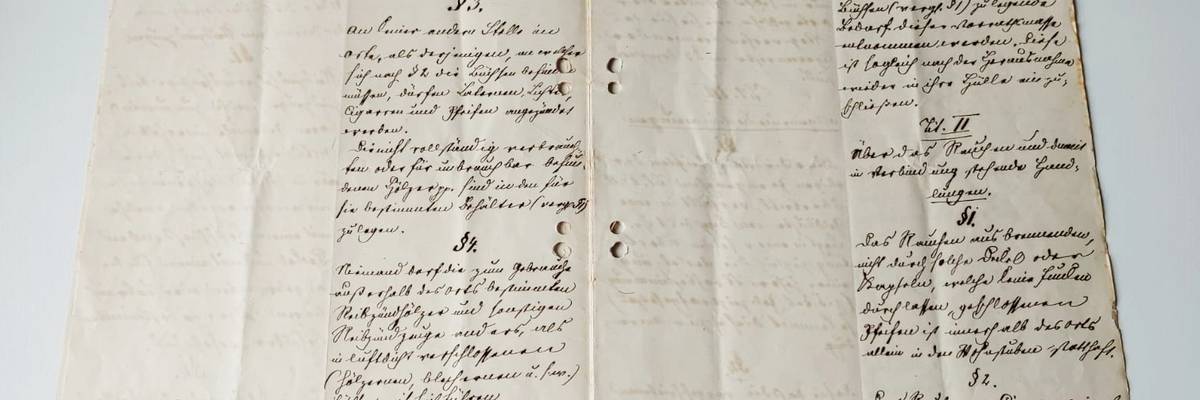 §3.
An keiner andern Stelle im
Orte, als derjenigen, an welcher
sich nach §2 die Büchsen befinden
müssen, dürfen Laternen, Lichte,
Cigarren und Pfeifen angezündet
werden.
Die nicht vollständig verbrauch-
ten oder für unbrauchbar befun-
denen Hölzer pp. sind in den für
sie bestimmten Behälter (vergl. §1)
zu legen.
§4.
Niemand darf die zum Gebrauche
außerhalb des Orts bestimmten
Reibzündhölzer und sonstigen
Reibzündzeuge anders, als
in luftdicht verschlossenen
(hölzernen, blechernen u. s. w.)
Büchsen (vergl. §1) zu legende
Bedarf dieser Vorrathsmasse
entnommen werden. Diese
ist sogleich nach der Herausnahme
wieder in ihre Hülle einzu-
schließen.
Tit. II
Über das Rauchen und damit
in Verbindung stehende Hand-
lungen.
§1.
Das Rauchen aus brennenden,
nicht durch solche Deckel oder
Kapseln, welche keine Funken
durchlassen, geschlossenen
Pfeifen ist innerhalb des Orts
allein in den Wohnstuben statthaft.
§2.